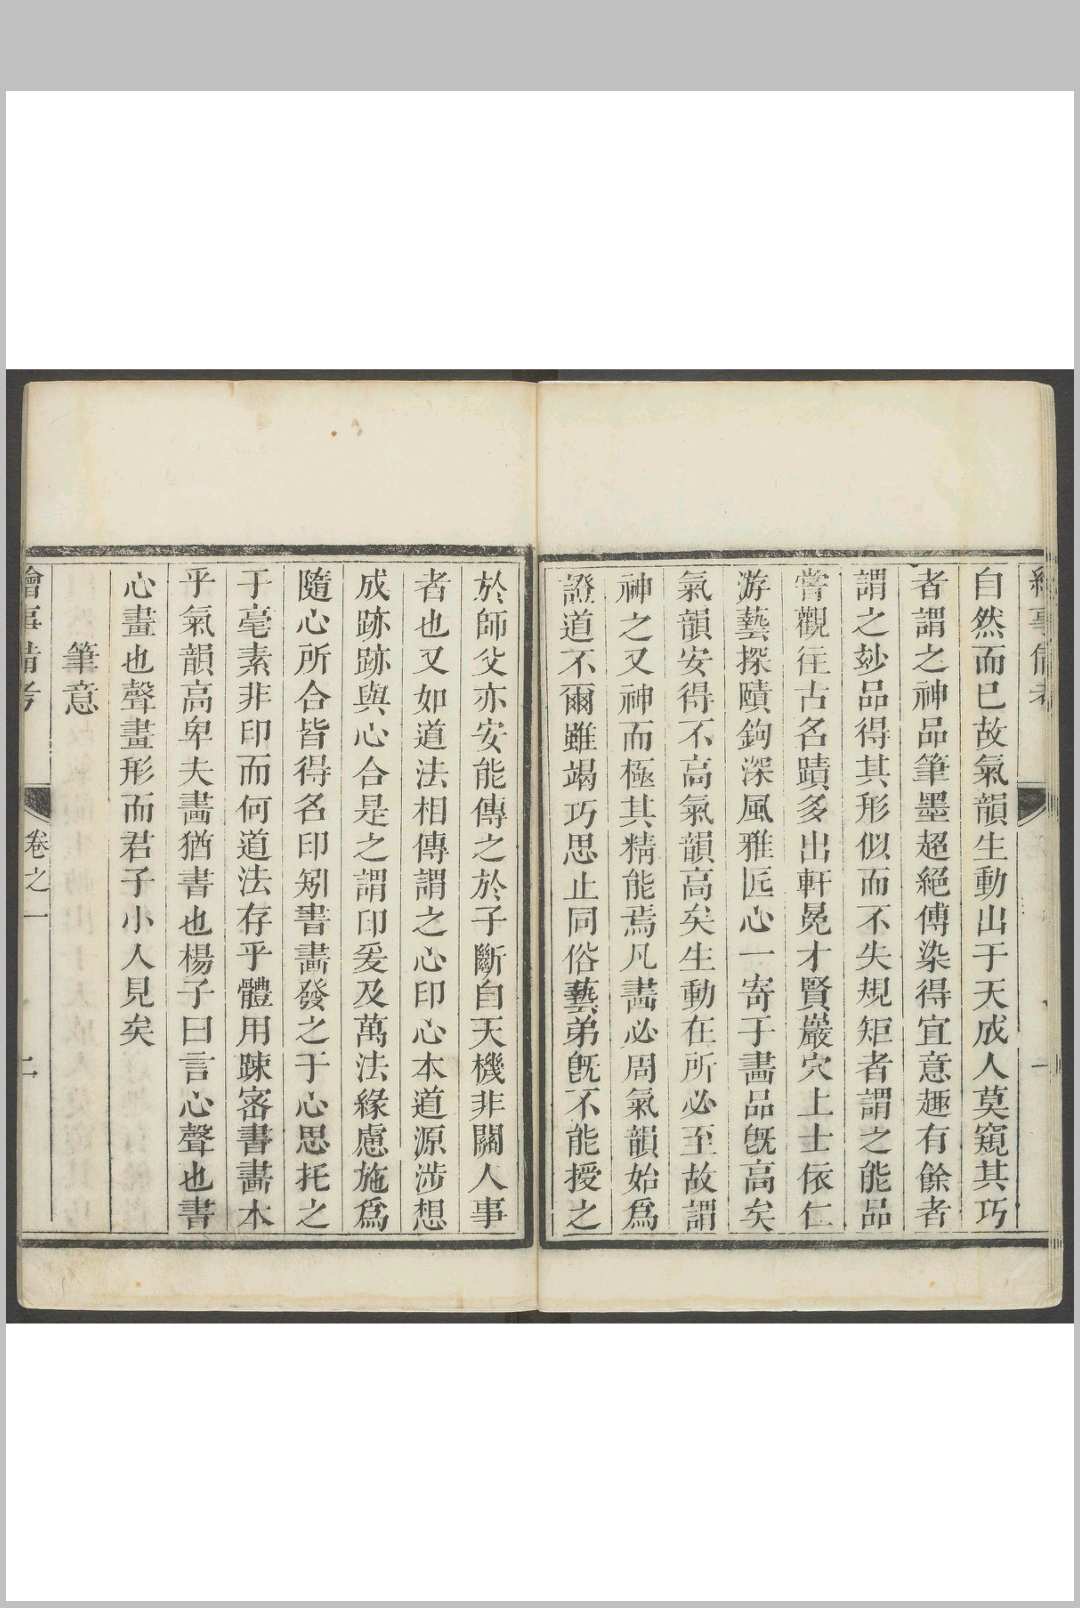 繪事備考
一
自然而已故氣韻生動出于天成人莫窺其巧
者謂之神品筆墨超絕傅染得宜意趣有餘者
謂之妙品得其形似而不失規矩者謂之能品
嘗觀往古名蹟多出軒冕才賢巖穴上士依仁
游藝探賾鉤深風雅匠心一寄于畫品旣高矣
氣韻安得不高氣韻高矣生動在所必至故謂
神之又神而極其精能焉凡畫必周氣韻始爲
證道不爾雖竭巧思止同俗藝弟旣不能授之
於師父亦安能傳之於子斷自天機非關人事
者也又如道法相傳謂之心印心本道源涉想
成跡跡與心合是之謂印爰及萬法緣慮施爲
隨心所合皆得名印矧書畫發之于心思托之
于毫素非印而何道法存乎體用踈密書畫本
乎氣韻高卑夫畫猶書也楊子曰言心聲也書
心畫也聲畫形而君子小人見矣
筆意
繪事備考
卷之一
二